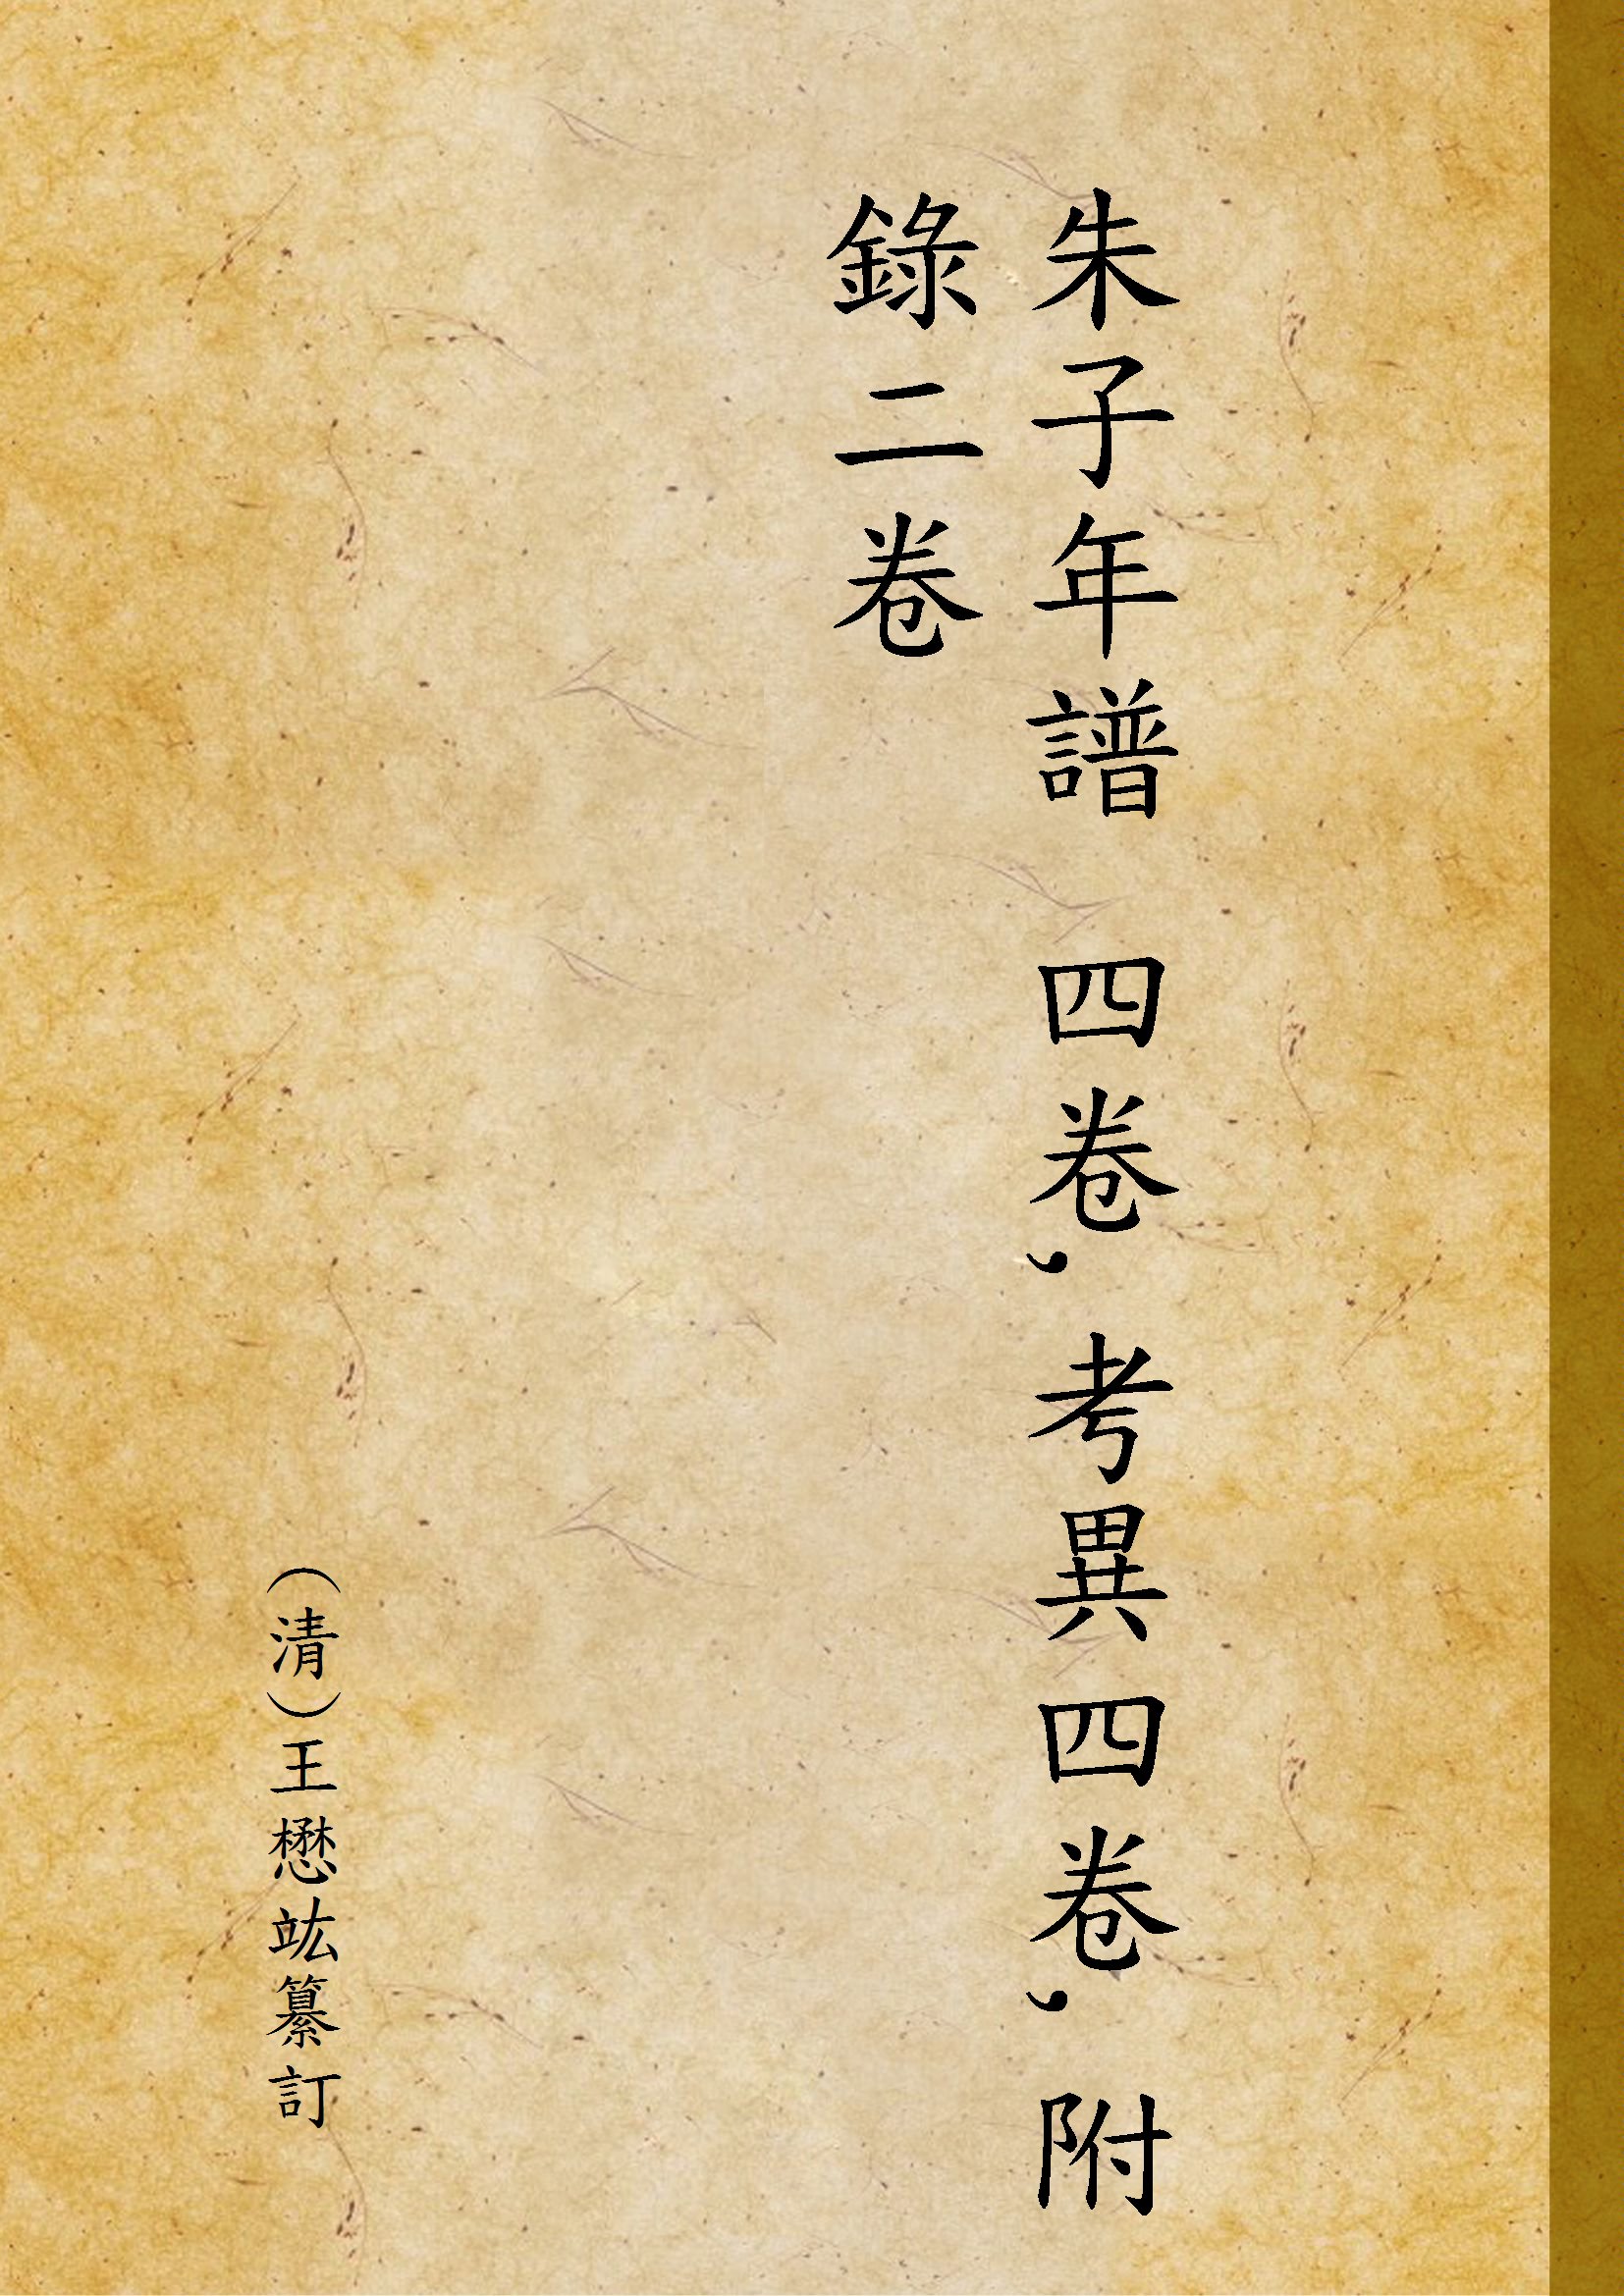 朱子年譜 四卷,考異四卷,附
錄二卷
(清)王懋竑纂訂